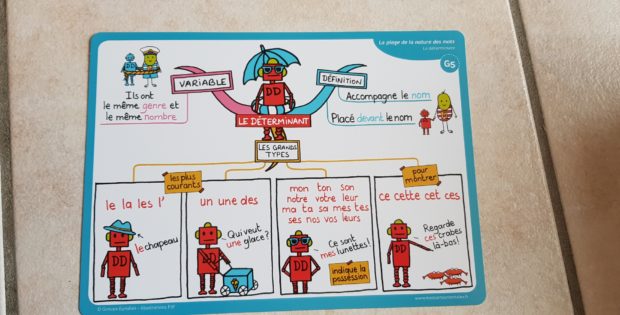 La plage de la nature des mots
Le déterminant
G5
VARIABLE
DÉFINITION
Ils ont
le même genre et
le même nombre
Accompagne le nom
Placé devant le nom
DD
LE DÉTERMINANT
LES GRANDS
TYPES
les plus
courants
pour
montrer
le la les l'
un une des
mon ton son
notre votre leur
ma ta sa mes tes
ses nos vos leurs
ce cette cet ces
le chapeau
Qui veut
une glace?
Ce sont
mes lunettes!
Regarde
ces crabes
là-bas!
DD
DD
DD
DD
indique la
possession